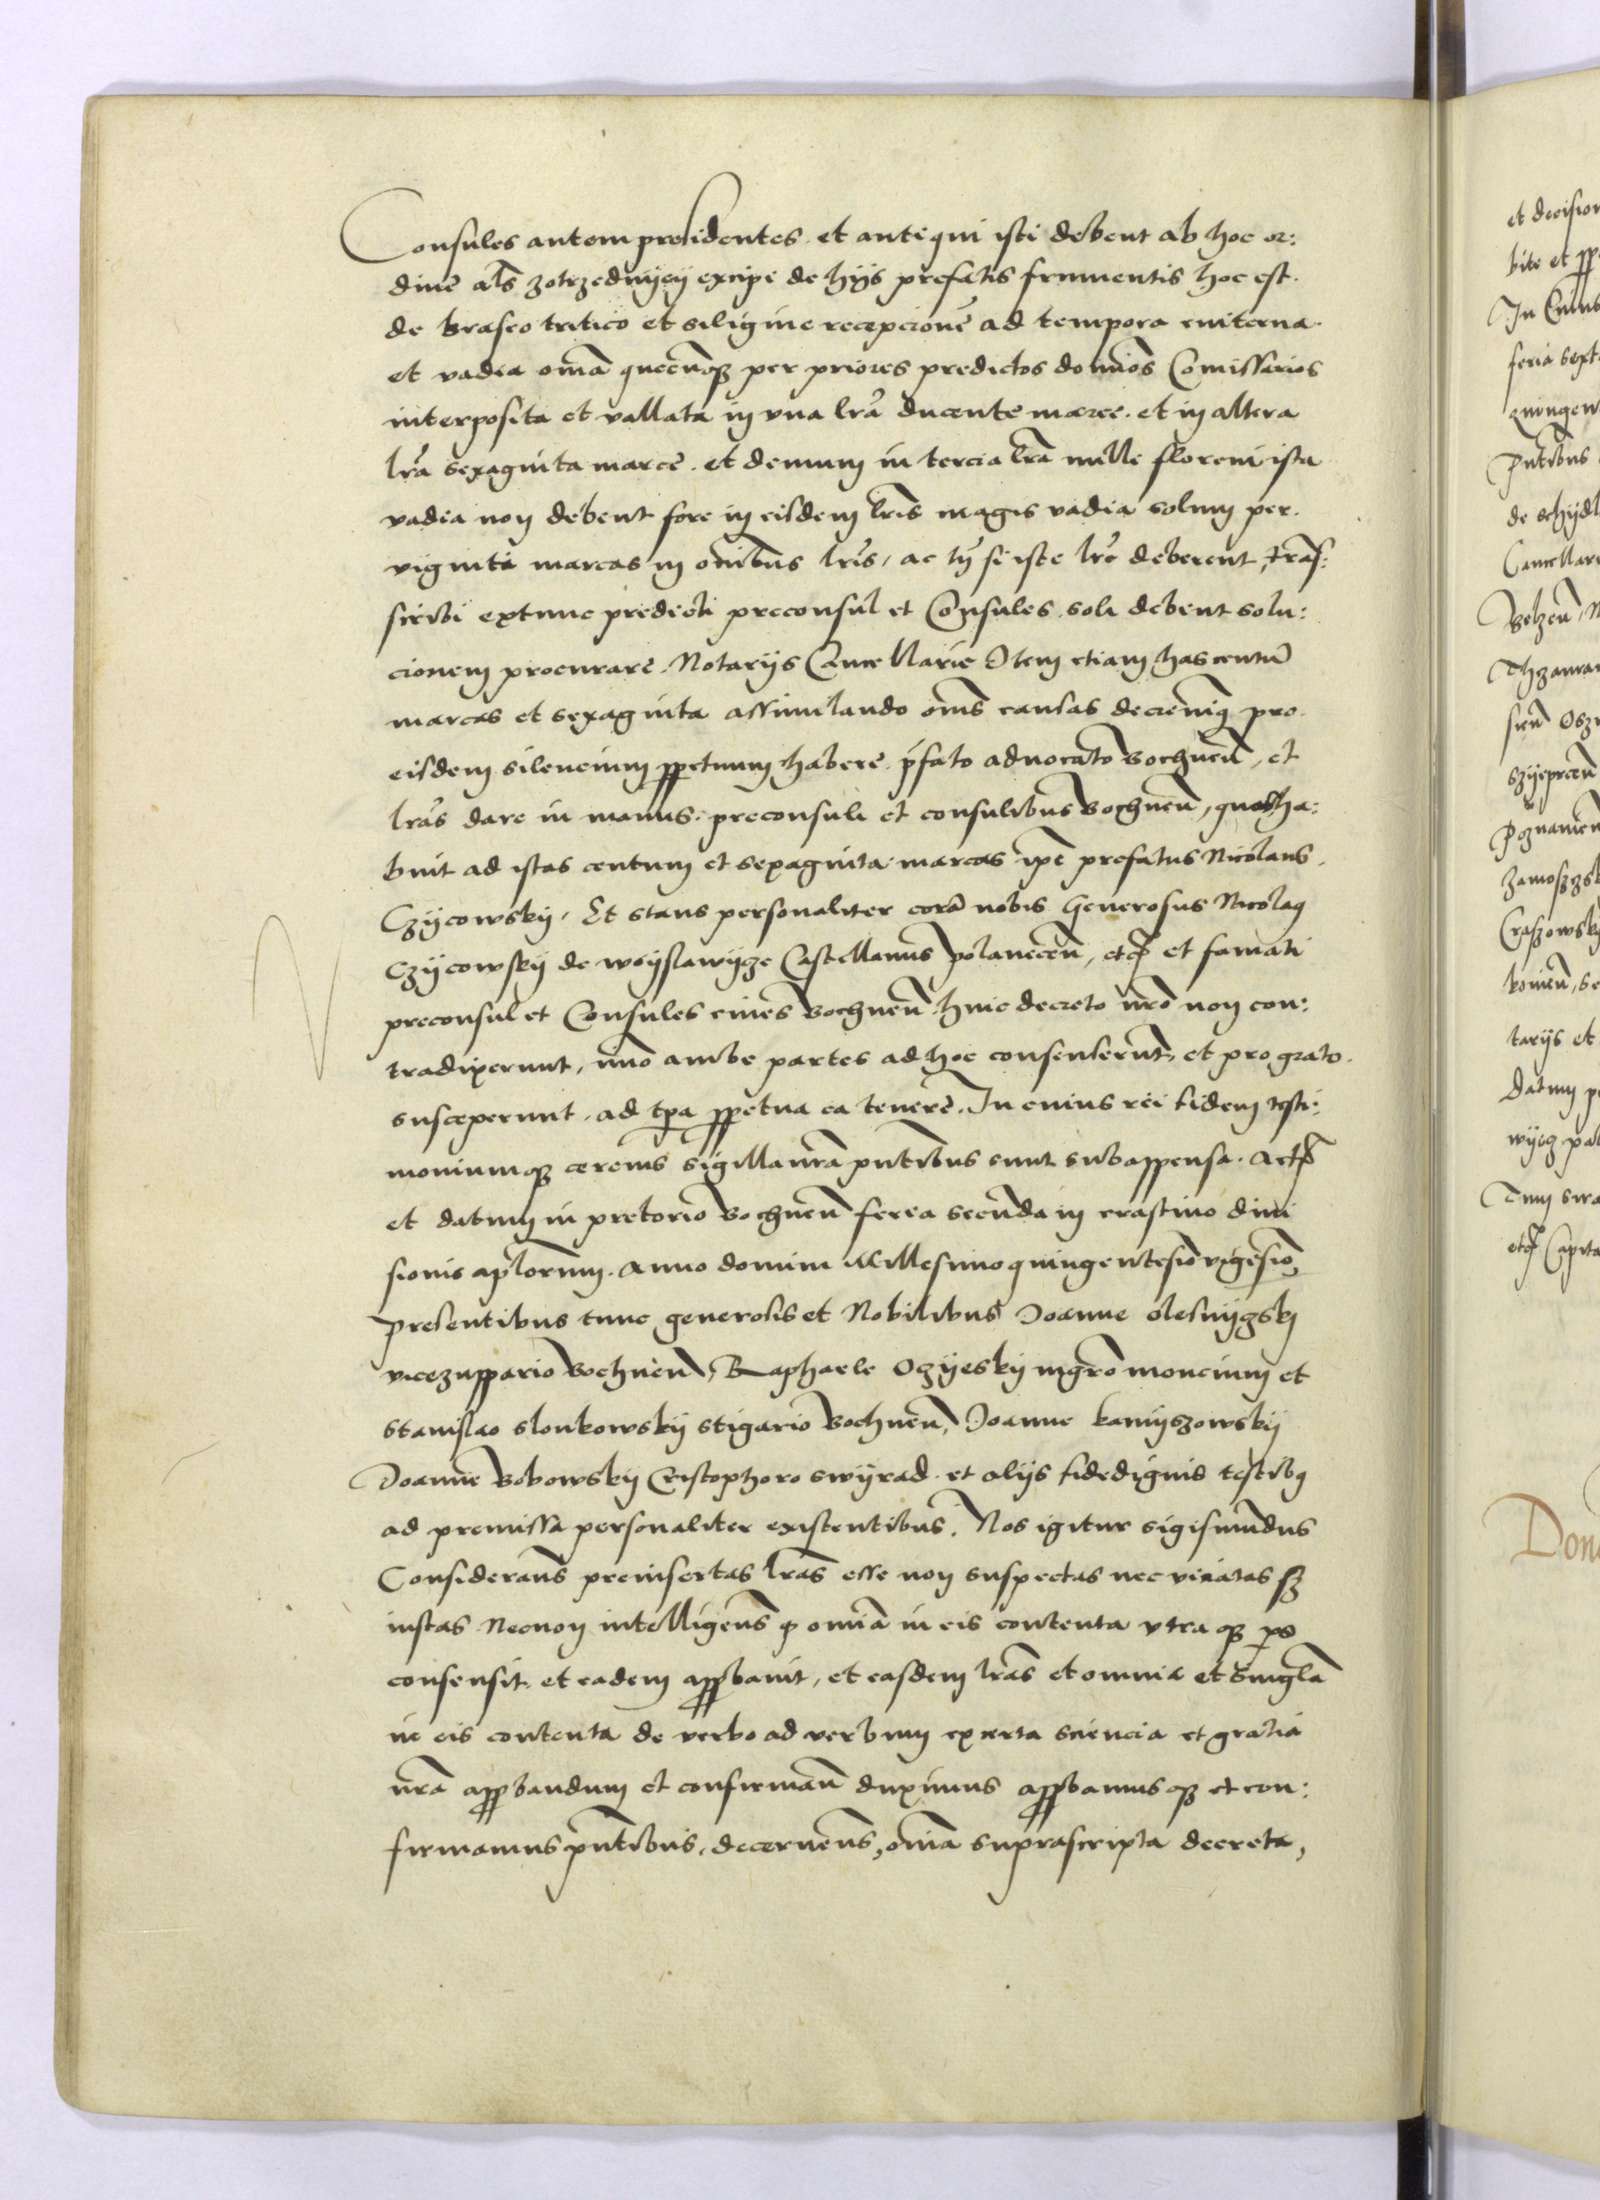 Consules autem presidentes et antiqui isti debent ab hoc or:
dine als zotrzedwyey excipi de hijs prefatis frumentis hoc est
de Braseo tritico et siligine recepcione ad tempora eviterna
et vadia oma quecunq per priores predictos dominos Comissarios
interposita et vallata in vna lra ducente marce. et in altera
lra sexaginta marce. et demum in tercia lra mille floreni ista
vadia non debent fore in eisdem lris magis vadia solum per
viginti marcas in omibus lris, ac si iste lre deberent Tras:
scribi extunc predicti preconsul et Consules soli debent solu:
cionem procurare Notarijs Cancellarie Item etiam has centum
marcas et sexaginta assimilando oms causas decrevimq pro
eisdem silencium ppetuum habere pfato aduocato Bochnen, et
lras dare in manus preconsuli et consulibus Bochnen, quas ha:
buit ad istas centum et sexaginta marcas ipe prefatus Nicolaus
Czycowsky, Et stans personaliter cora nobis Generosus Nicolaq
Czycowsky de woyslawyze Castellanus polanecen, etc et famati
preconsul et Consules cives Bochnen huic decreto nro non con:
tradixerunt, imo ambe partes ad hoc consenserunt et pro grato
susceperunt ad tpa ppetua ea tenere. In cuius rei fidem testi:
moniumq cereius sigilla nra pntibus sunt subappensa. Actu
et datum in pretorio Bochnen feria secunda in crastino divi
sionis aplorum. Anno domini Millesimo quingentesio vigesio,
presentibus tunc generosis et Nobilibus Joanne olesnyzskj
vicezuppario Bochnen, Raphaele Ozyesky mgro moncium et
Stanislao slonkowsky stigario Bochnen, Joanne kamyszowsky
Joanne Bobowsky Cristophoro swyrad et alijs fidedignis testibq
ad premissa personaliter existentibus. Nos igitur sigismundus
Considerans preinsertas lras esse non suspectas nec viciatas sz
iustas Necnon intelligens q omia in eis contenta vtraq ps
consensit et eadem appbauit, et easdem lras et omnia et singla
in eis contenta de verbo ad verbum ex certa sciencia et gratia
nra appbandum et confirman duximus appbamusq et con:
firmamus pntibus, decernens, omia suprascripta decreta,
et decision
bite et pp
In Cuius
feria sext
quingen
pntibus
de schydl
Cancellar
Belzen
szyeprcen
poznanien
zamoszsk
Craszowsky
tarijs et
Datum p
Don